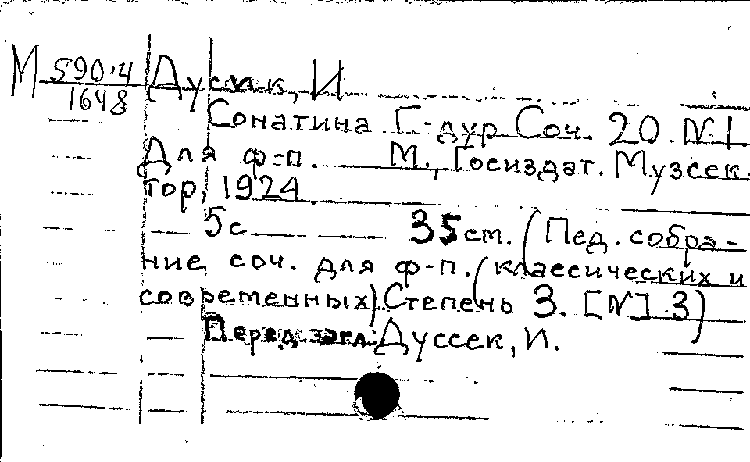 М 590.4 Дусик, И
1648
Сонатина Г-дур Соч. 20. №1
Для ф-п. М., Госиздат. Музсек-
тор, 1924
5с 35 см. (Пед. собра-
ние соч. для ф-п. (классических и
современных). Степень 3. [№] 3)
Перед загл: Дуссек, И.